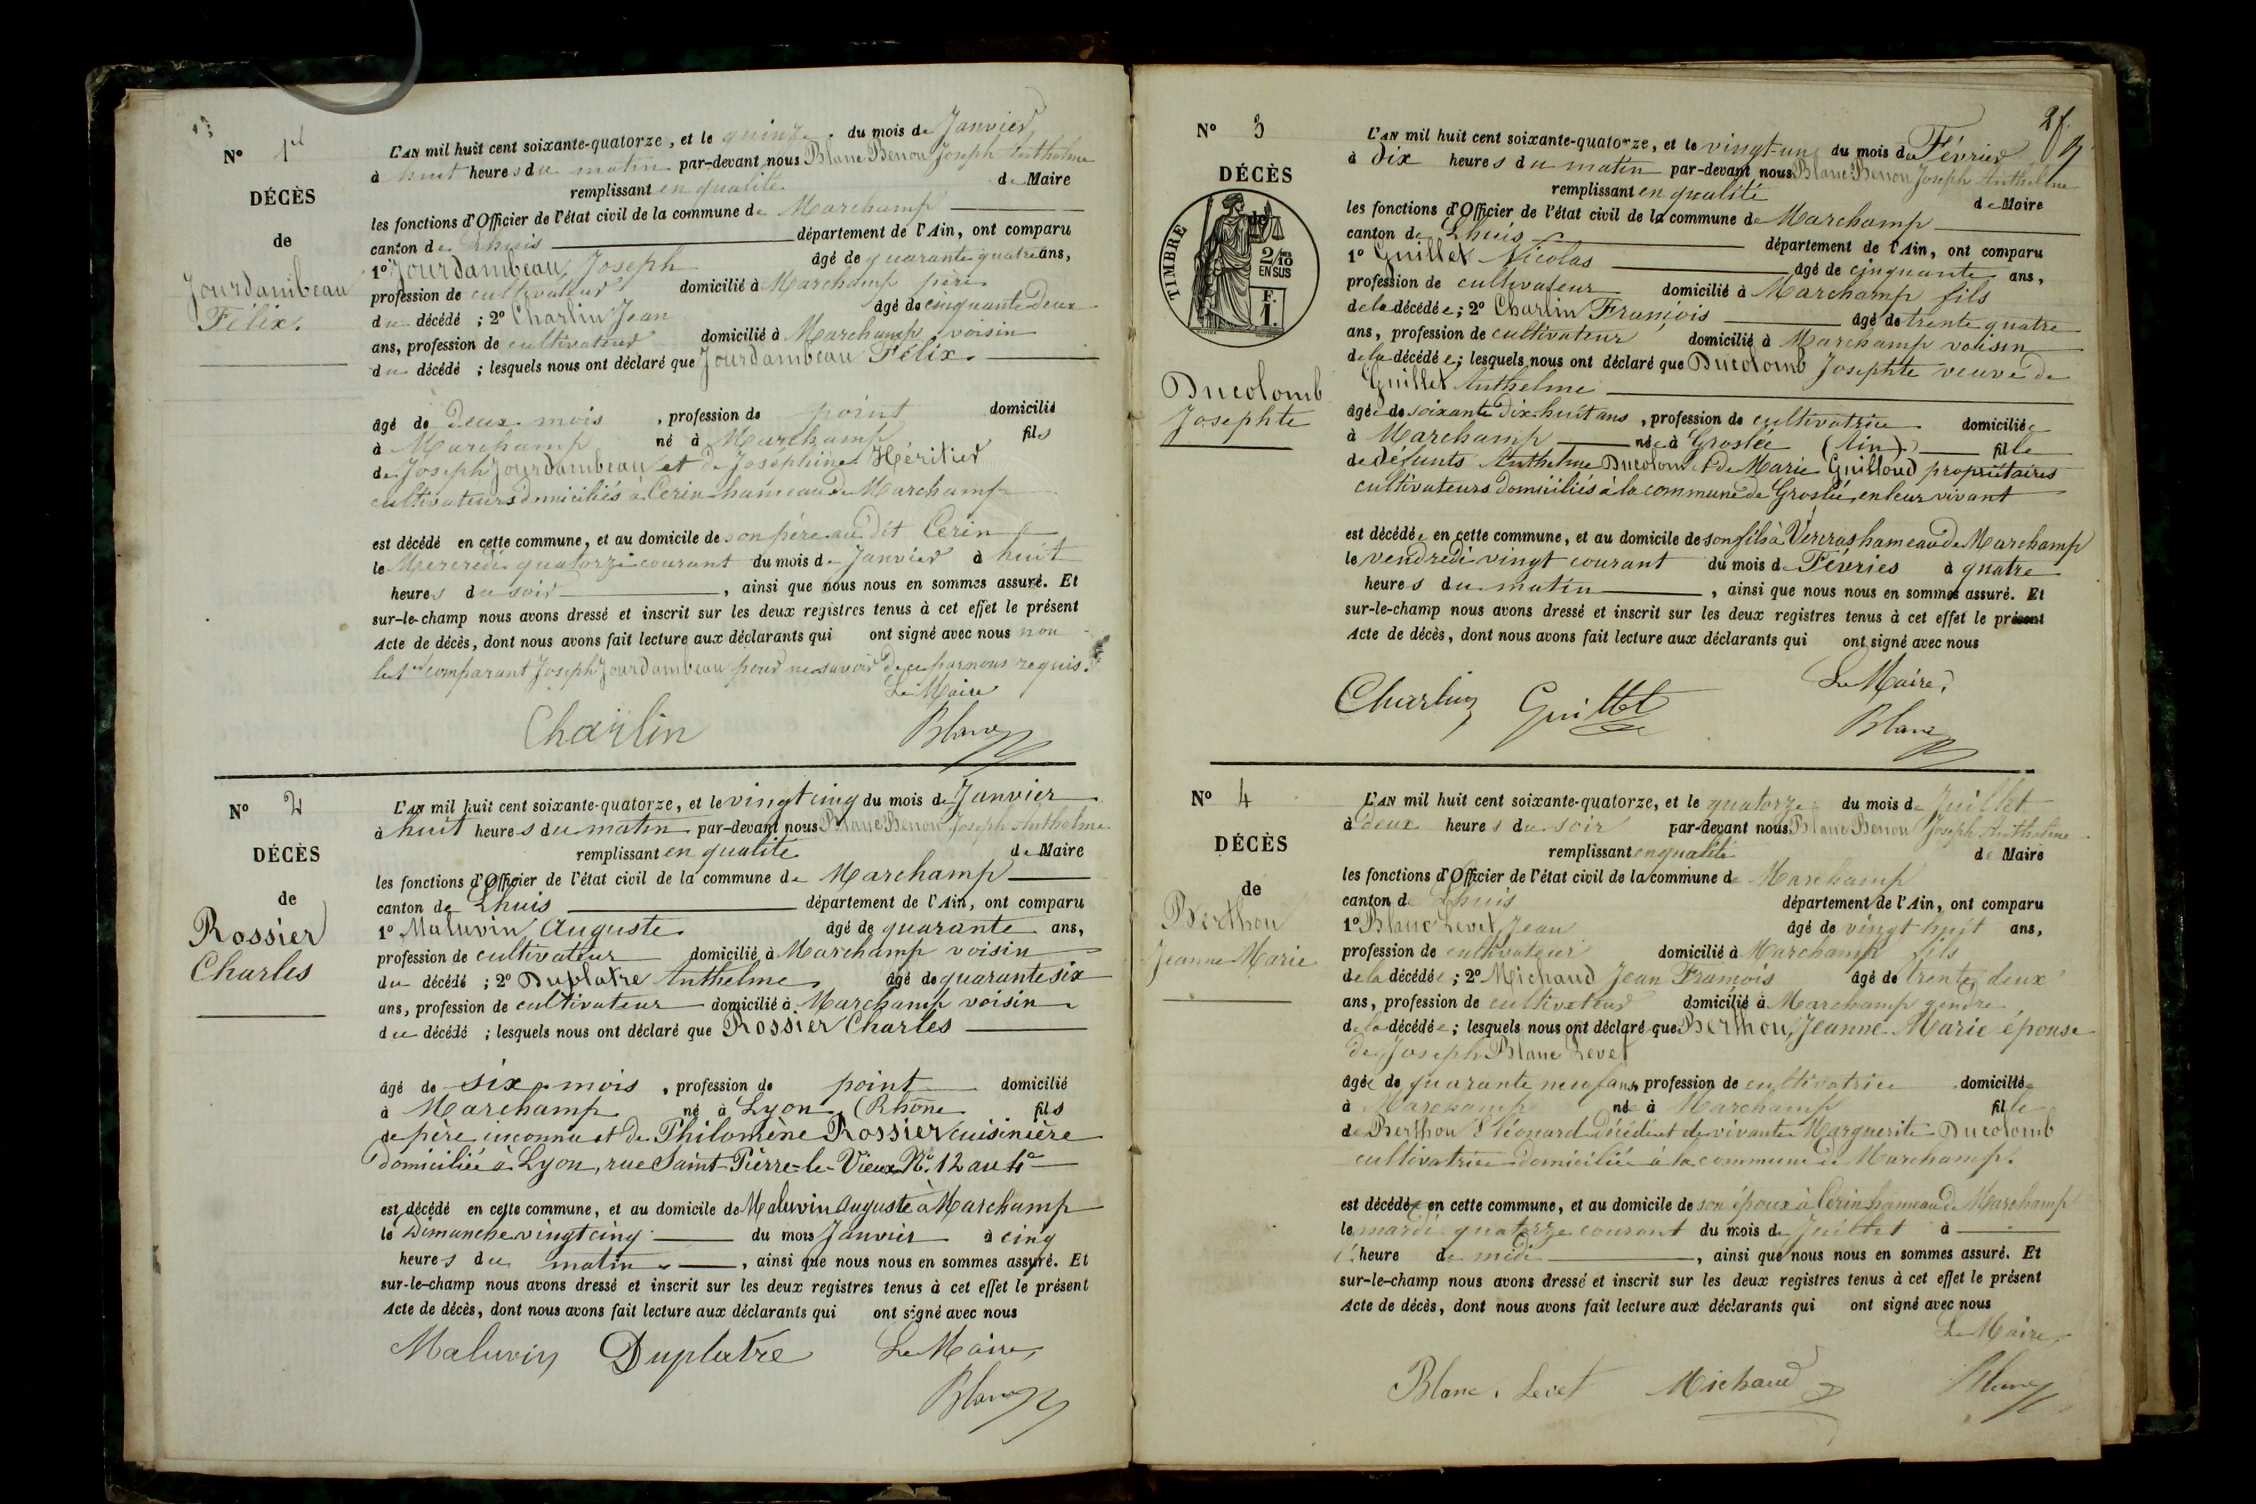 Nº 1er
DÉCÈS
de
Jourdambeau
Félix.
L'AN mil huit cent soixante-quatorze, et le quinze du mois de Janvier
à huit heures du matin par-devant nous Blanc Benon Joseph Anthelme
remplissant en qualité de Maire
les fonctions d'Officier de l'état civil de la commune de Marchamp
canton de Lhuis département de l'Ain, ont comparu
1º Jourdambeau Joseph âgé de quarante quatre ans,
profession de cultivateur domicilié à Marchamp père
du décédé ; 2º Charlin Jean âgé de cinquante Deux
ans, profession de cultivateur domicilié à Marchamp voisin
du décédé ; lesquels nous ont déclaré que Jourdambeau Félix.
âgé de Deux mois , profession de point domicilié
à Marchamp né à Marchamp fils
de Joseph Jourdambeau et de Joséphine Héritier
cultivateurs domiciliés à Cerin hameau de Marchamp
est décédé en cette commune, et au domicile de son père au dit Cerin
le Mercredi quatorze courant du mois de Janvier à huit
heures du soir , ainsi que nous nous en sommes assuré. Et
sur-le-champ nous avons dressé et inscrit sur les deux registres tenus à cet effet le présent
Acte de décès, dont nous avons fait lecture aux déclarants qui ont signé avec nous non
le 1er comparant Joseph Jourdambeau pour ne savoir de ce par nous requis.
Le Maire
Charlin Blanc
Nº 2
DÉCÈS
de
Rossier
Charles
L'AN mil huit cent soixante-quatorze, et le vingt cinq du mois de Janvier
à huit heures du matin par-devant nous Blanc Benon Joseph Anthelme
remplissant en qualité de Maire
les fonctions d'Officier de l'état civil de la commune de Marchamp
canton de Lhuis département de l'Ain, ont comparu
1º Maluvin Auguste âgé de quarante ans,
profession de cultivateur domicilié à Marchamp voisin
du décédé ; 2º Duplatre Anthelme âgé de quarante six
ans, profession de cultivateur domicilié à Marchamp voisin
du décédé ; lesquels nous ont déclaré que Rossier Charles
âgé de six mois , profession de point domicilié
à Marchamp né à Lyon (Rhône fils
de père inconnu et de Philomène Rossier cuisinière
domiciliée à Lyon, rue Saint-Pierre-le-Vieux Nº 12 au 4e
est décédé en cette commune, et au domicile de Maluvin Auguste à Marchamp
le Dimanche vingt cinq du mois Janvier à cinq
heures du matin , ainsi que nous nous en sommes assuré. Et
sur-le-champ nous avons dressé et inscrit sur les deux registres tenus à cet effet le présent
Acte de décès, dont nous avons fait lecture aux déclarants qui ont signé avec nous
Maluvin Duplatre Le Maire
Blanc
Nº 3
DÉCÈS
de
TIMBRE
2/10
EN SUS
F.
1.
Ducolomb
Josephte
L'AN mil huit cent soixante-quatorze, et le vingt-un du mois de Février
à dix heures du matin par-devant nous Blanc Benon Joseph Anthelme
remplissant en qualité de Maire
les fonctions d'Officier de l'état civil de la commune de Marchamp
canton de Lhuis département de l'Ain, ont comparu
1º Guillet Nicolas âgé de cinquante ans,
profession de cultivateur domicilié à Marchamp fils
de la décédée ; 2º Charlin François âgé de trente quatre
ans, profession de cultivateur domicilié à Marchamp voisin
de la décédée ; lesquels nous ont déclaré que Ducolomb Josephte veuve de
Guillet Anthelme
âgée de soixante Dix-huit ans , profession de cultivatrice domiciliée
à Marchamp née à Groslée (Ain) fille
de Défunts Anthelme Ducolomb et de Marie Guilloud propriétaires
cultivateurs domiciliés à la commune de Groslée, en leur vivant
est décédée en cette commune, et au domicile de son fils à Vercras hameau de Marchamp
le vendredi vingt courant du mois de Février à quatre
heures du matin , ainsi que nous nous en sommes assuré. Et
sur-le-champ nous avons dressé et inscrit sur les deux registres tenus à cet effet le présent
Acte de décès, dont nous avons fait lecture aux déclarants qui ont signé avec nous
Le Maire,
Charlin Guillet Blanc
Nº 4
DÉCÈS
de
Berthon
Jeanne Marie
L'AN mil huit cent soixante-quatorze, et le quatorze du mois de Juillet
à deux heures du soir par-devant nous Blanc Benon Joseph Anthelme
remplissant en qualité de Maire
les fonctions d'Officier de l'état civil de la commune de Marchamp
canton de Lhuis département de l'Ain, ont comparu
1º Blanc Levet Jean âgé de vingt huit ans,
profession de cultivateur domicilié à Marchamp fils
de la décédée ; 2º Michaud Jean François âgé de trente deux
ans, profession de cultivateur domicilié à Marchamp gendre
de la décédée ; lesquels nous ont déclaré que Berthon Jeanne Marie épouse
de Joseph Blanc Levet
âgée de quarante neuf ans, profession de cultivatrice domiciliée
à Marchamp née à Marchamp fille
de Berthon Léonard Décédé et de vivante Marguerite Ducolomb
cultivatrice domiciliée à la commune de Marchamp.
est décédée en cette commune, et au domicile de son époux à Cerin hameau de Marchamp
le mardi quatorze courant du mois de Juillet à
heure de midi , ainsi que nous nous en sommes assuré. Et
sur-le-champ nous avons dressé et inscrit sur les deux registres tenus à cet effet le présent
Acte de décès, dont nous avons fait lecture aux déclarants qui ont signé avec nous
Le Maire,
Blanc Levet Michaud Blanc